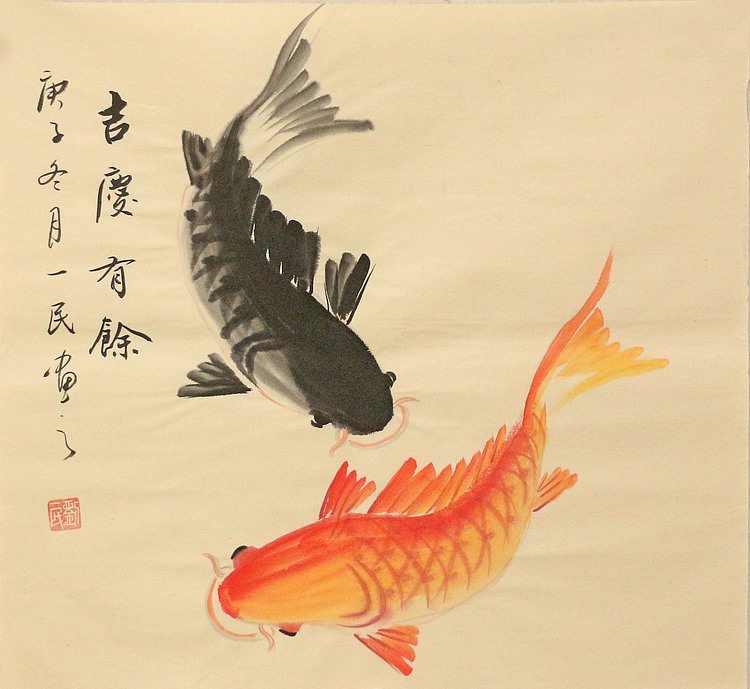 吉慶有餘
庚子冬月一民畫之
劉一民